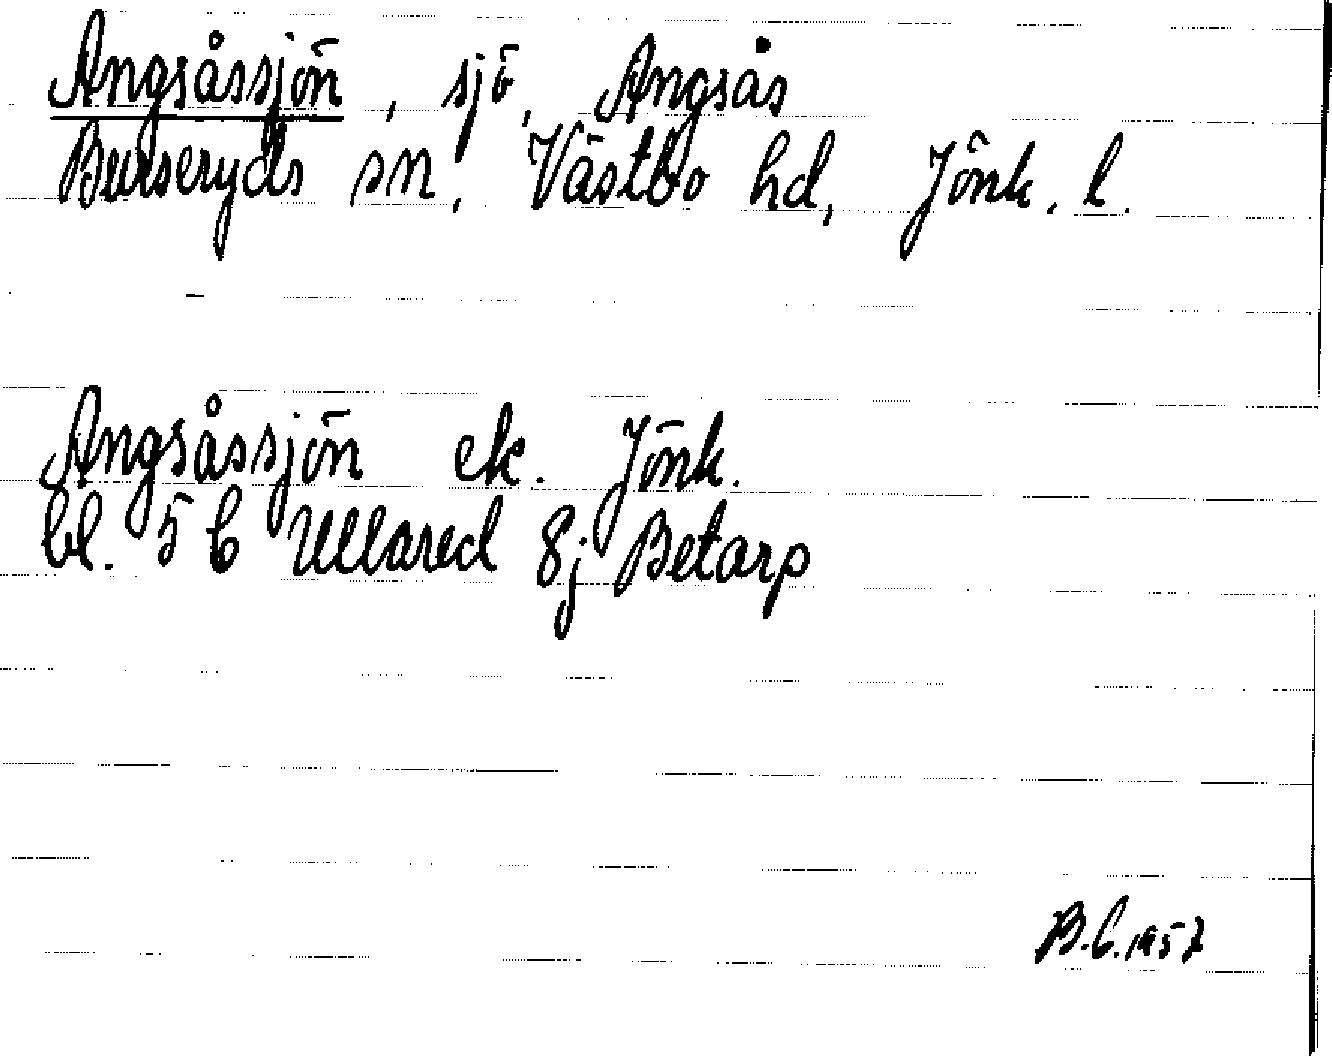 Angsåssjön, sjö, Angsås
Burseryds sn, Västbo hd, Jönk. l.
Angsåssjön ek. Jönk.
bl. 5 C Ullared 8j Betarp
B.C. 1957